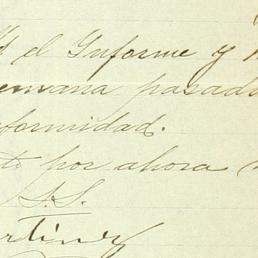 el Informe y
semana pasada
formidad.
por ahora
S.S.
artinez